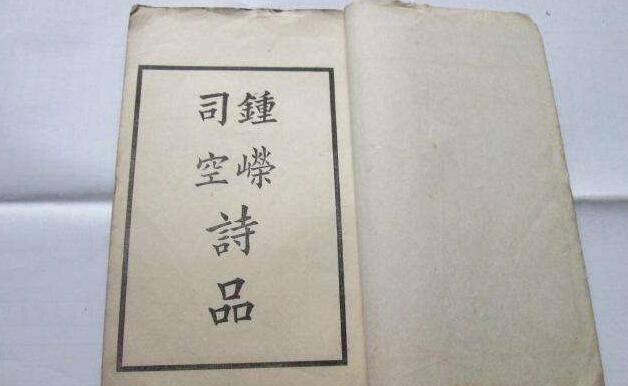 鍾嶸
司空
詩品